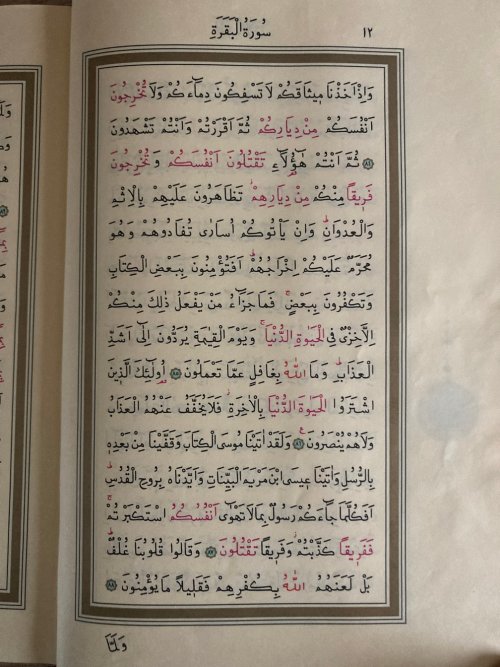 سُورَةُ الْبَقَرَةِ ١٢
وَاِذْ اَخَذْنَا م۪يثَاقَكُمْ لَا تَسْفِكُونَ دِمَٓاءَكُمْ وَلَا تُخْرِجُونَ
اَنْفُسَكُمْ مِنْ دِيَارِكُمْ ثُمَّ اَقْرَرْتُمْ وَاَنْتُمْ تَشْهَدُونَ
﴿٨٤﴾ ثُمَّ اَنْتُمْ هٰٓؤُ۬لَٓاءِ تَقْتُلُونَ اَنْفُسَكُمْ وَتُخْرِجُونَ
فَر۪يقًا مِنْكُمْ مِنْ دِيَارِهِمْۘ تَظَاهَرُونَ عَلَيْهِمْ بِالْاِثْمِ
وَالْعُدْوَانِۜ وَاِنْ يَأْتُوكُمْ اُسَارٰى تُفَادُوهُمْ وَهُوَ
مُحَرَّمٌ عَلَيْكُمْ اِخْرَاجُهُمْۜ اَفَتُؤْمِنُونَ بِبَعْضِ الْكِتَابِ
وَتَكْفُرُونَ بِبَعْضٍۚ فَمَا جَزَٓاءُ مَنْ يَفْعَلُ ذٰلِكَ مِنْكُمْ
اِلَّا خِزْيٌ فِي الْحَيٰوةِ الدُّنْيَاۚ وَيَوْمَ الْقِيٰمَةِ يُرَدُّونَ اِلٰٓى اَشَدِّ
الْعَذَابِۜ وَمَا اللّٰهُ بِغَافِلٍ عَمَّا تَعْمَلُونَ ﴿٨٥﴾ اُو۬لٰٓئِكَ الَّذ۪ينَ
اشْتَرَوُا الْحَيٰوةَ الدُّنْيَا بِالْاٰخِرَةِۘ فَلَا يُخَفَّفُ عَنْهُمُ الْعَذَابُ
وَلَا هُمْ يُنْصَرُونَ۟ ﴿٨٦﴾ وَلَقَدْ اٰتَيْنَا مُوسَى الْكِتَابَ وَقَفَّيْنَا مِنْ بَعْدِه۪
بِالرُّسُلِ وَاٰتَيْنَا ع۪يسَى ابْنَ مَرْيَمَ الْبَيِّنَاتِ وَاَيَّدْنَاهُ بِرُوحِ الْقُدُسِۜ
اَفَكُلَّمَا جَٓاءَكُمْ رَسُولٌ بِمَا لَا تَهْوٰٓى اَنْفُسُكُمُ اسْتَكْبَرْتُمْۚ
فَفَر۪يقًا كَذَّبْتُمْۘ وَفَر۪يقًا تَقْتُلُونَ ﴿٨٧﴾ وَقَالُوا قُلُوبُنَا غُلْفٌۜ
بَلْ لَعَنَهُمُ اللّٰهُ بِكُفْرِهِمْ فَقَل۪يلًا مَا يُؤْمِنُونَ ﴿٨٨﴾
وَلَمَّا